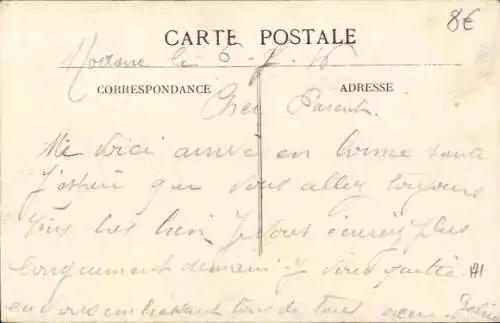 8€
CARTE POSTALE
Modane le 6 - 7 - 16
CORRESPONDANCE
ADRESSE
Cher Parents.
Me voici arrivé en bonne santé
J'espère que vous allez toujours
très bien Je vous écrirez plus
longuement demain. Je vous quitte
en vous embrassant tous de tout cœur